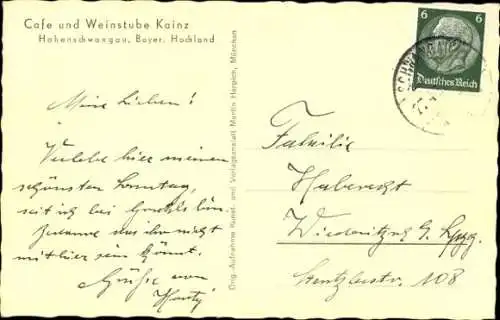 Cafe und Weinstube Kainz
Hohenschwangau, Bayer. Hochland
Meine Lieben!
Verlebe hier meinen
schönsten Sonntag,
seit ich bei
das ihr nicht
mit hier sein könnt.
Grüße von
Orig.-Aufnahme Kunst- und Verlagsanstalt Martin Herpich, München
6 6
Deutsches Reich
Familie
Haberecht
Wiederitzsch b. Lpzg.
108